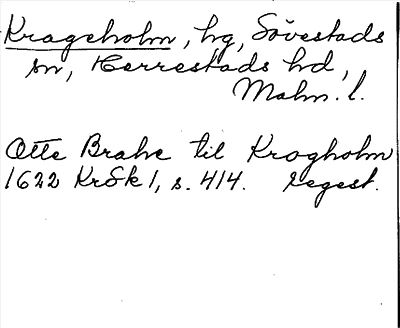 Krageholm, hg, Sövestads
sn, Herrestads hd,
Malm. l.
Otte Brahe til Krogholm
1622 KrSk 1, s. 414. Regest.